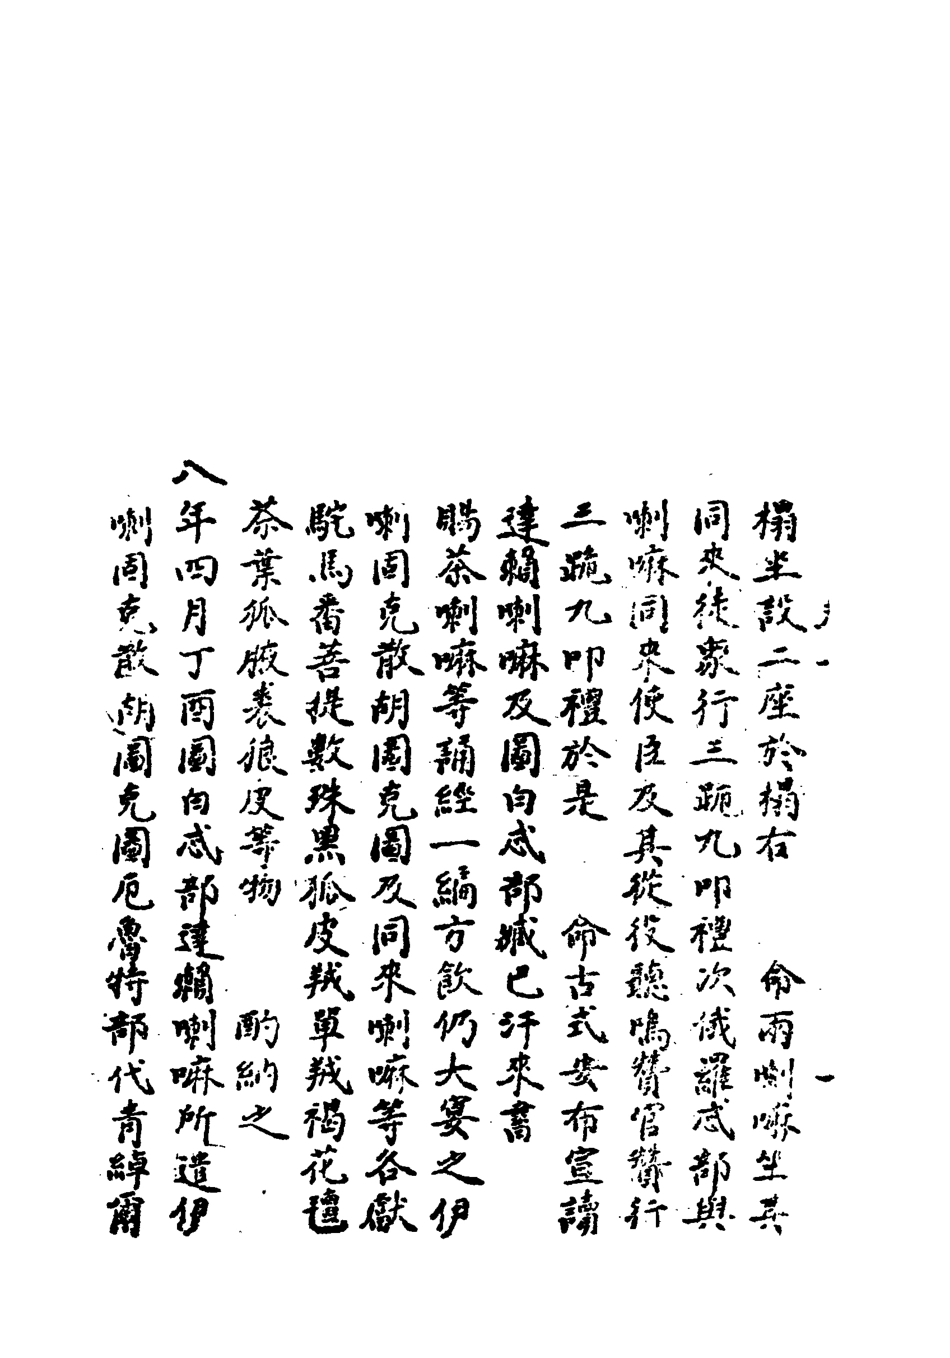 榻坐設二座於榻右 命兩喇嘛坐其
同來徒衆行三跪九叩禮次俄羅忒部與
喇嘛同來使臣及其從役聽鳴贊官贊行
三跪九叩禮於是 命古式安布宣讀
達賴喇嘛及圖白忒部臧巴汗來書
賜茶喇嘛等誦經一編方飲仍大宴之伊
喇固克散胡圖克圖及同來喇嘛等各獻
駝馬番菩提數珠黑狐皮羢單羢褐花氊
茶葉狐腋裘狼皮等物 酌納之
八年四月丁酉圖白忒部達賴喇嘛所遣伊
喇固克散胡圖克圖厄魯特部代青綽爾